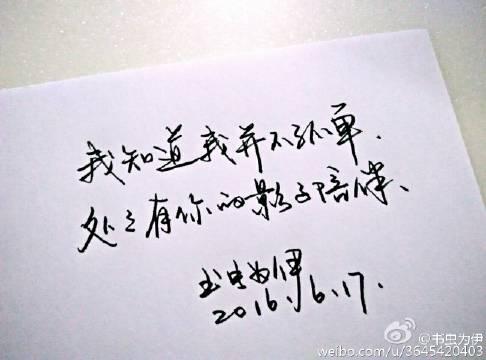 我知道我并不孤单.
处处有你的影子陪伴、
书虫为伊
2016.6.17.
@书虫为伊
weibo.com/u/3645420403